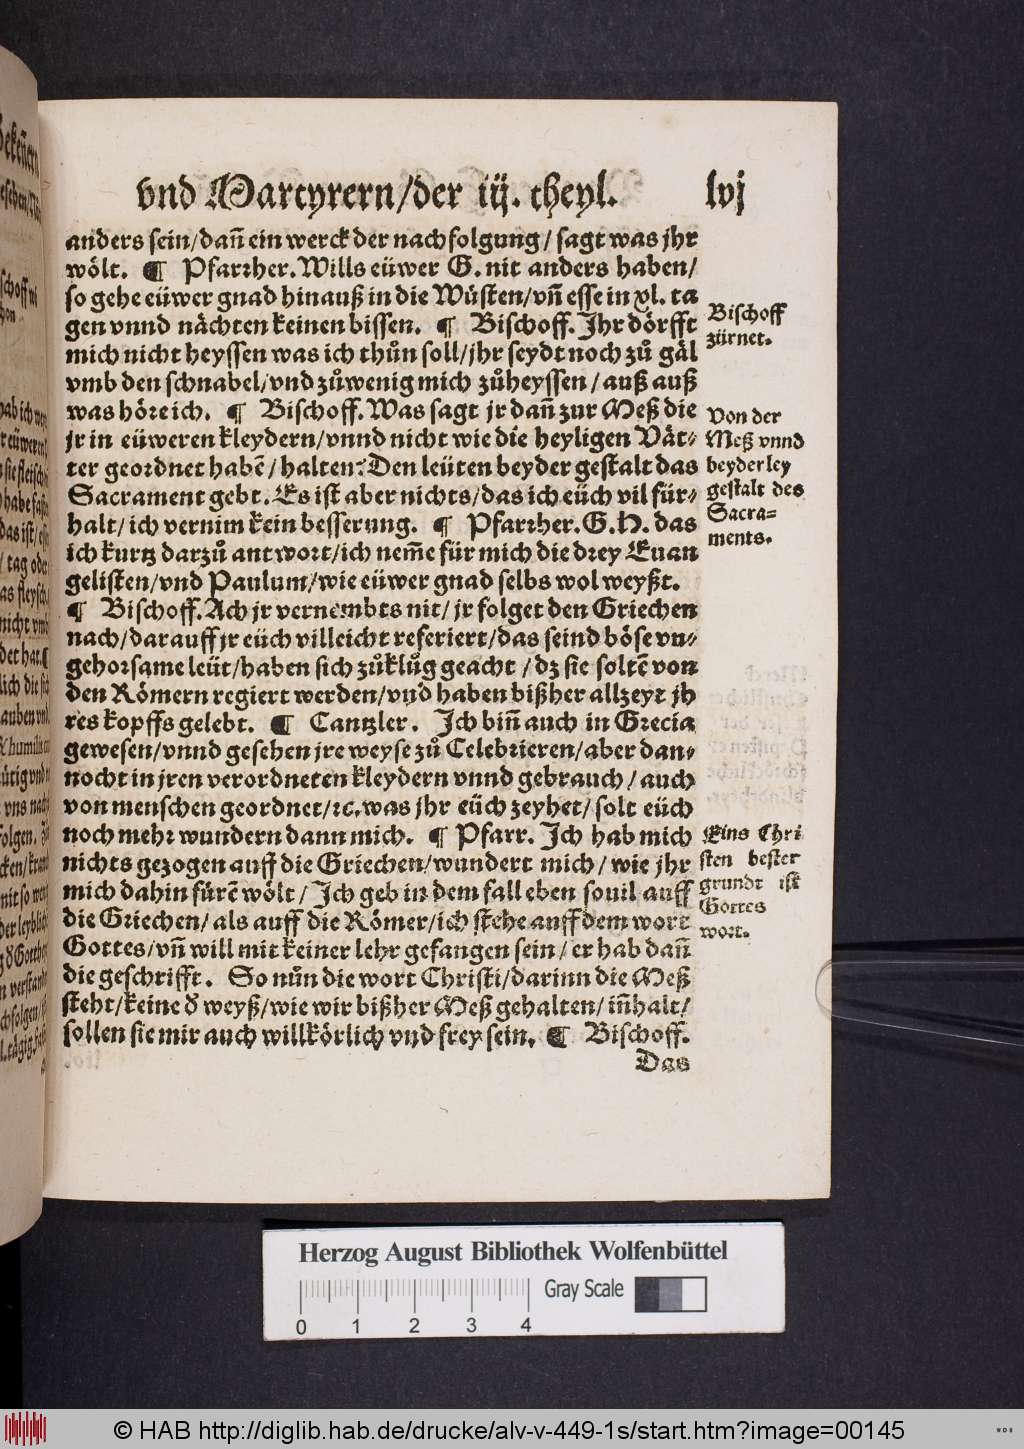 vnd Martyrern/der iij. theyl. lvj
anders sein/dañ ein werck der nachfolgung/ sagt was jhr
wölt. ¶ Pfarrher. Wills eüwer G. nit anders haben/
so gehe eüwer gnad hinauß in die Wüsten/vñ esse in xl. ta
gen vnnd nächten keinen bissen. ¶ Bischoff. Jhr dörfft
mich nicht heyssen was ich thůn soll/jhr seydt noch zů gäl
vmb den schnabel/vnd zůwenig mich zůheyssen/ auß auß
was höre ich. ¶ Bischoff. Was sagt jr dañ zur Meß die
jr in eüweren kleydern/vnnd nicht wie die heyligen Vät-
ter geordnet habē/ halten? Den leüten beyder gestalt das
Sacrament gebt. Es ist aber nichts/das ich eüch vil für-
halt/ ich vernim kein besserung. ¶ Pfarrher. G. H. das
ich kurtz darzů antwort/ich nem̃e für mich die drey Euan
gelisten/vnd Paulum/wie eüwer gnad selbs wol weyßt.
¶ Bischoff. Ach jr vernembts nit/ jr folget den Griechen
nach/darauff jr eüch villeicht referiert/das seind böse vn-
gehorsame leüt/haben sich zůklůg geacht/dz sie soltē von
den Römern regiert werden/vnd haben bißher allzeyt jh
res kopffs gelebt. ¶ Cantzler. Ich biñ auch in Grecia
gewesen/vnnd gesehen jre weyse zů Celebrieren/aber dan-
nocht in jren verordneten kleydern vnnd gebrauch/ auch
von menschen geordnet/ꝛc. was jhr eüch zeyhet/ solt eüch
noch mehr wundern dann mich. ¶ Pfarr. Ich hab mich
nichts gezogen auff die Griechen/wundert mich/ wie jhr
mich dahin fürē wölt/ Ich geb in dem fall eben souil auff
die Griechen/ als auff die Römer/ich stehe auff dem wort
Gottes/vñ will mit keiner lehr gefangen sein/ er hab dañ
die geschrifft. So nůn die wort Christi/darinn die Meß
steht/keine d̕ weyß/wie wir bißher Meß gehalten/ iñhalt/
sollen sie mir auch willkörlich vnd frey sein. ¶ Bischoff.
Das
Bischoff
zürnet.
Von der
Meß vnnd
beyderley
gestalt des
Sacra-
ments.
Eins Chri
sten bester
grundt ist
Gottes
wort.
Herzog August Bibliothek Wolfenbüttel
Gray Scale
0 1 2 3 4
© HAB http://diglib.hab.de/drucke/alv-v-449-1s/start.htm?image=00145